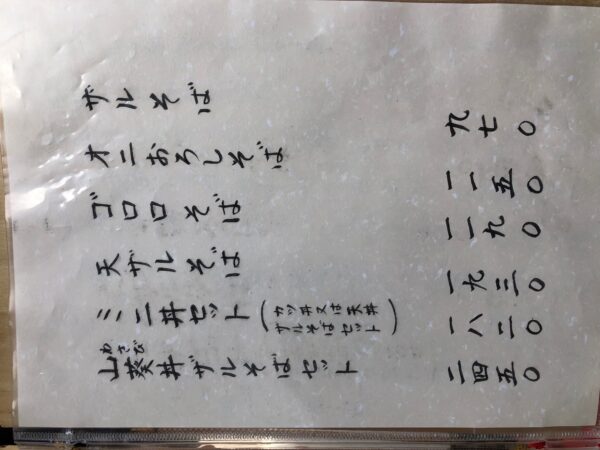 ザルそば 九七〇
オニおろしそば 一一五〇
ゴロロそば 一一九〇
天ザルそば 一九三〇
ミニ丼セット(カツ丼又は天丼 ザルそばセット) 一八二〇
わさび
山葵丼ザルそばセット 二四五〇